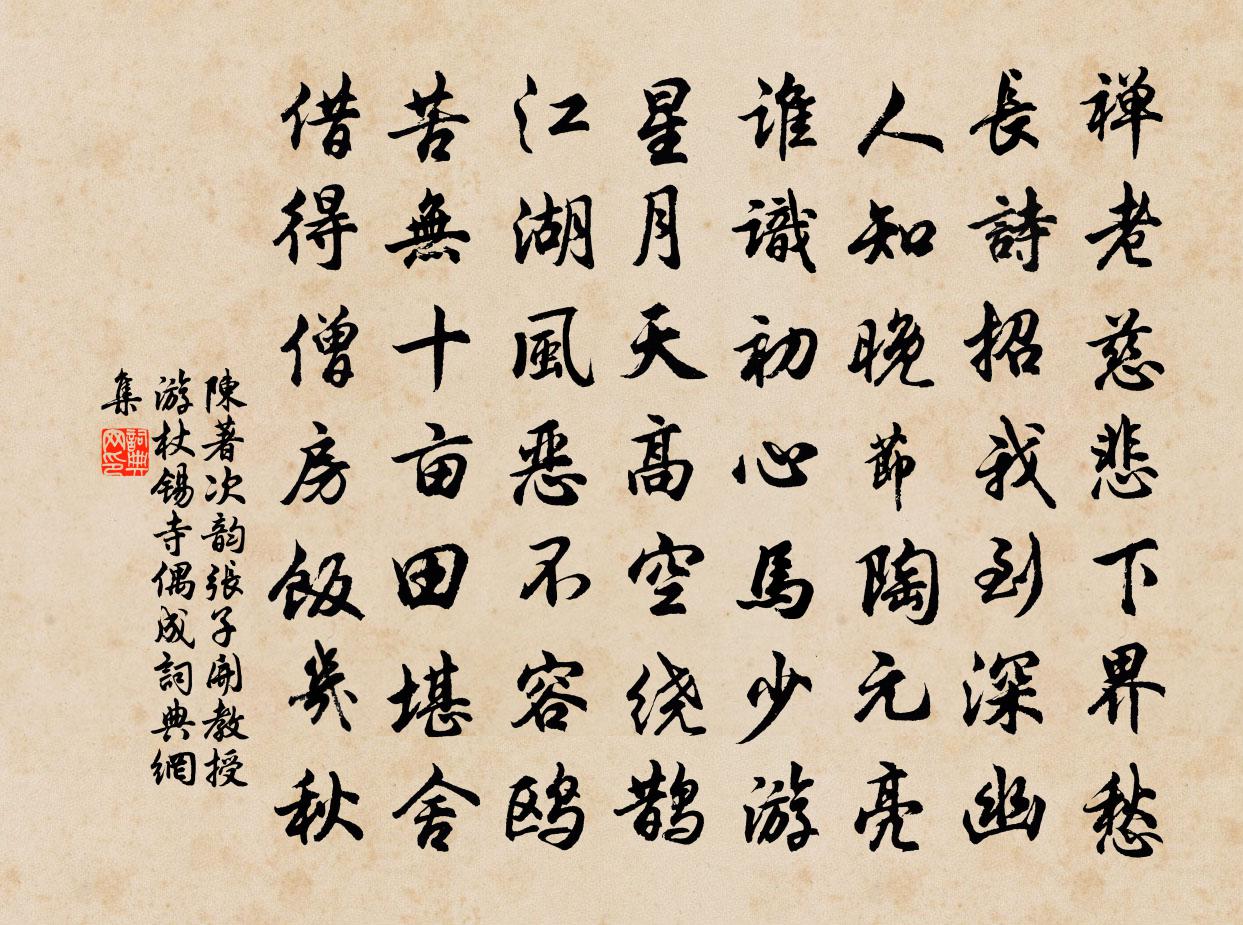 禅老慈悲下界愁
長詩招我到深幽
人知晚節陶元亮
谁識初心馬少游
星月天高空绕鹊
江湖風惡不容鸥
苦無十亩田堪舍
借得僧房飯幾秋
陳著次韵張子開教授
游杖锡寺偶成詞典網
集
詞典网印